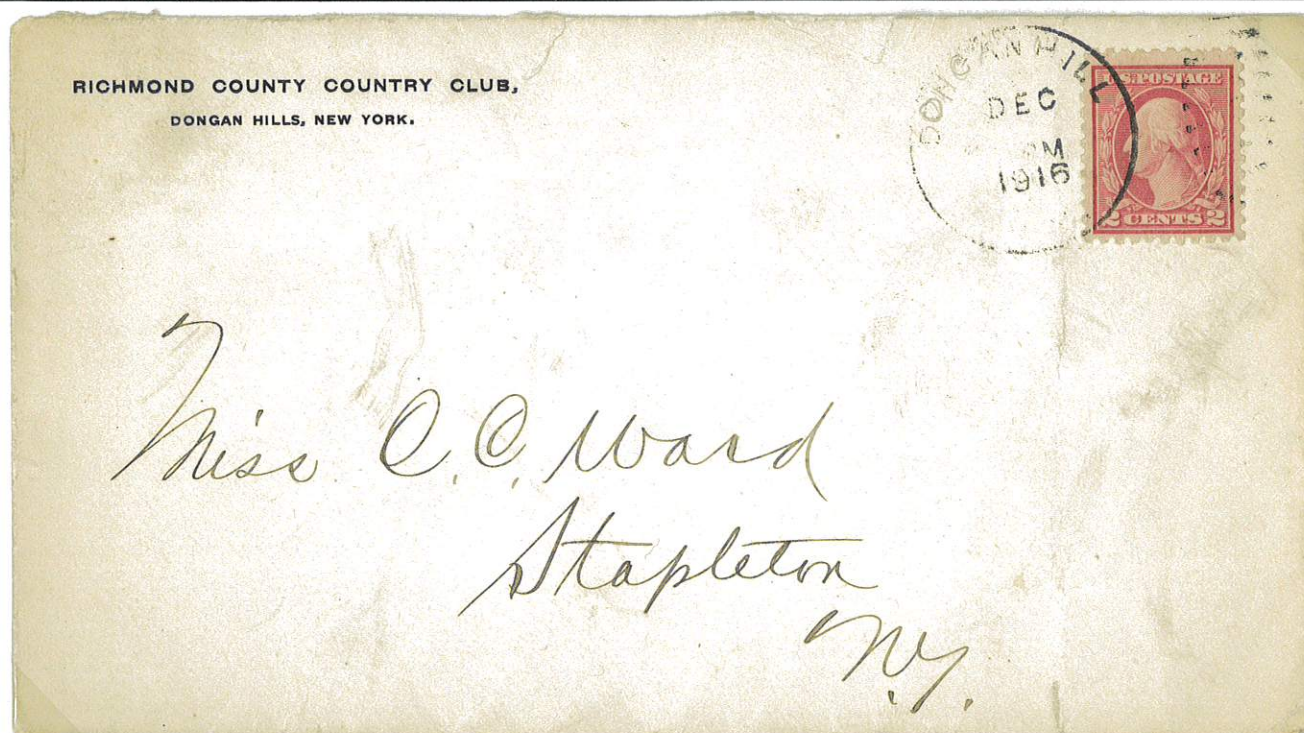 RICHMOND COUNTY COUNTRY CLUB,
DONGAN HILLS, NEW YORK.
DONGAN HILL
DEC
PM
1916
U.S. POSTAGE
2 CENTS 2
Miss C. C. Ward
Stapleton
N.Y.